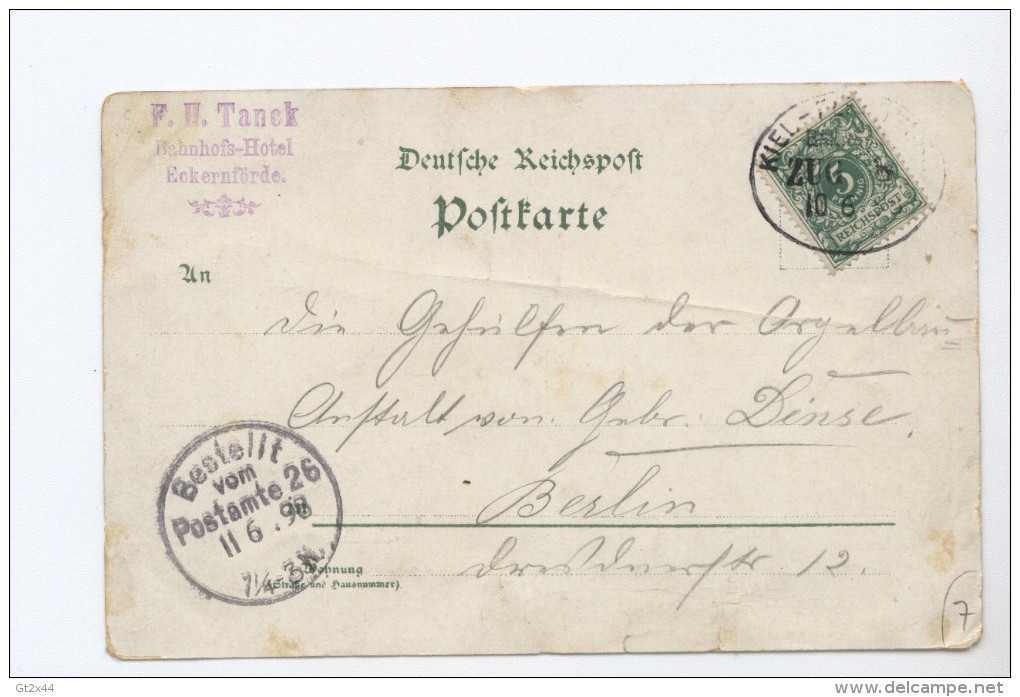 F. H. Tanck
Bahnhofs-Hotel
Eckernförde.
Deutsche Reichspost
Postkarte
KIEL-
ZUG 8
10 6
5
REICHSPOST
An
Die Gehülfen der Orgelbau
Anstalt von Gebr. Dinse,
Berlin
Bestellt
vom
Postamte 26
am
11 6. 98
7¼-8¾N.
Wohnung
(Straße und Hausnummer)
Dresdnerstr 12.
7
Gt2x44
www.delcampe.net